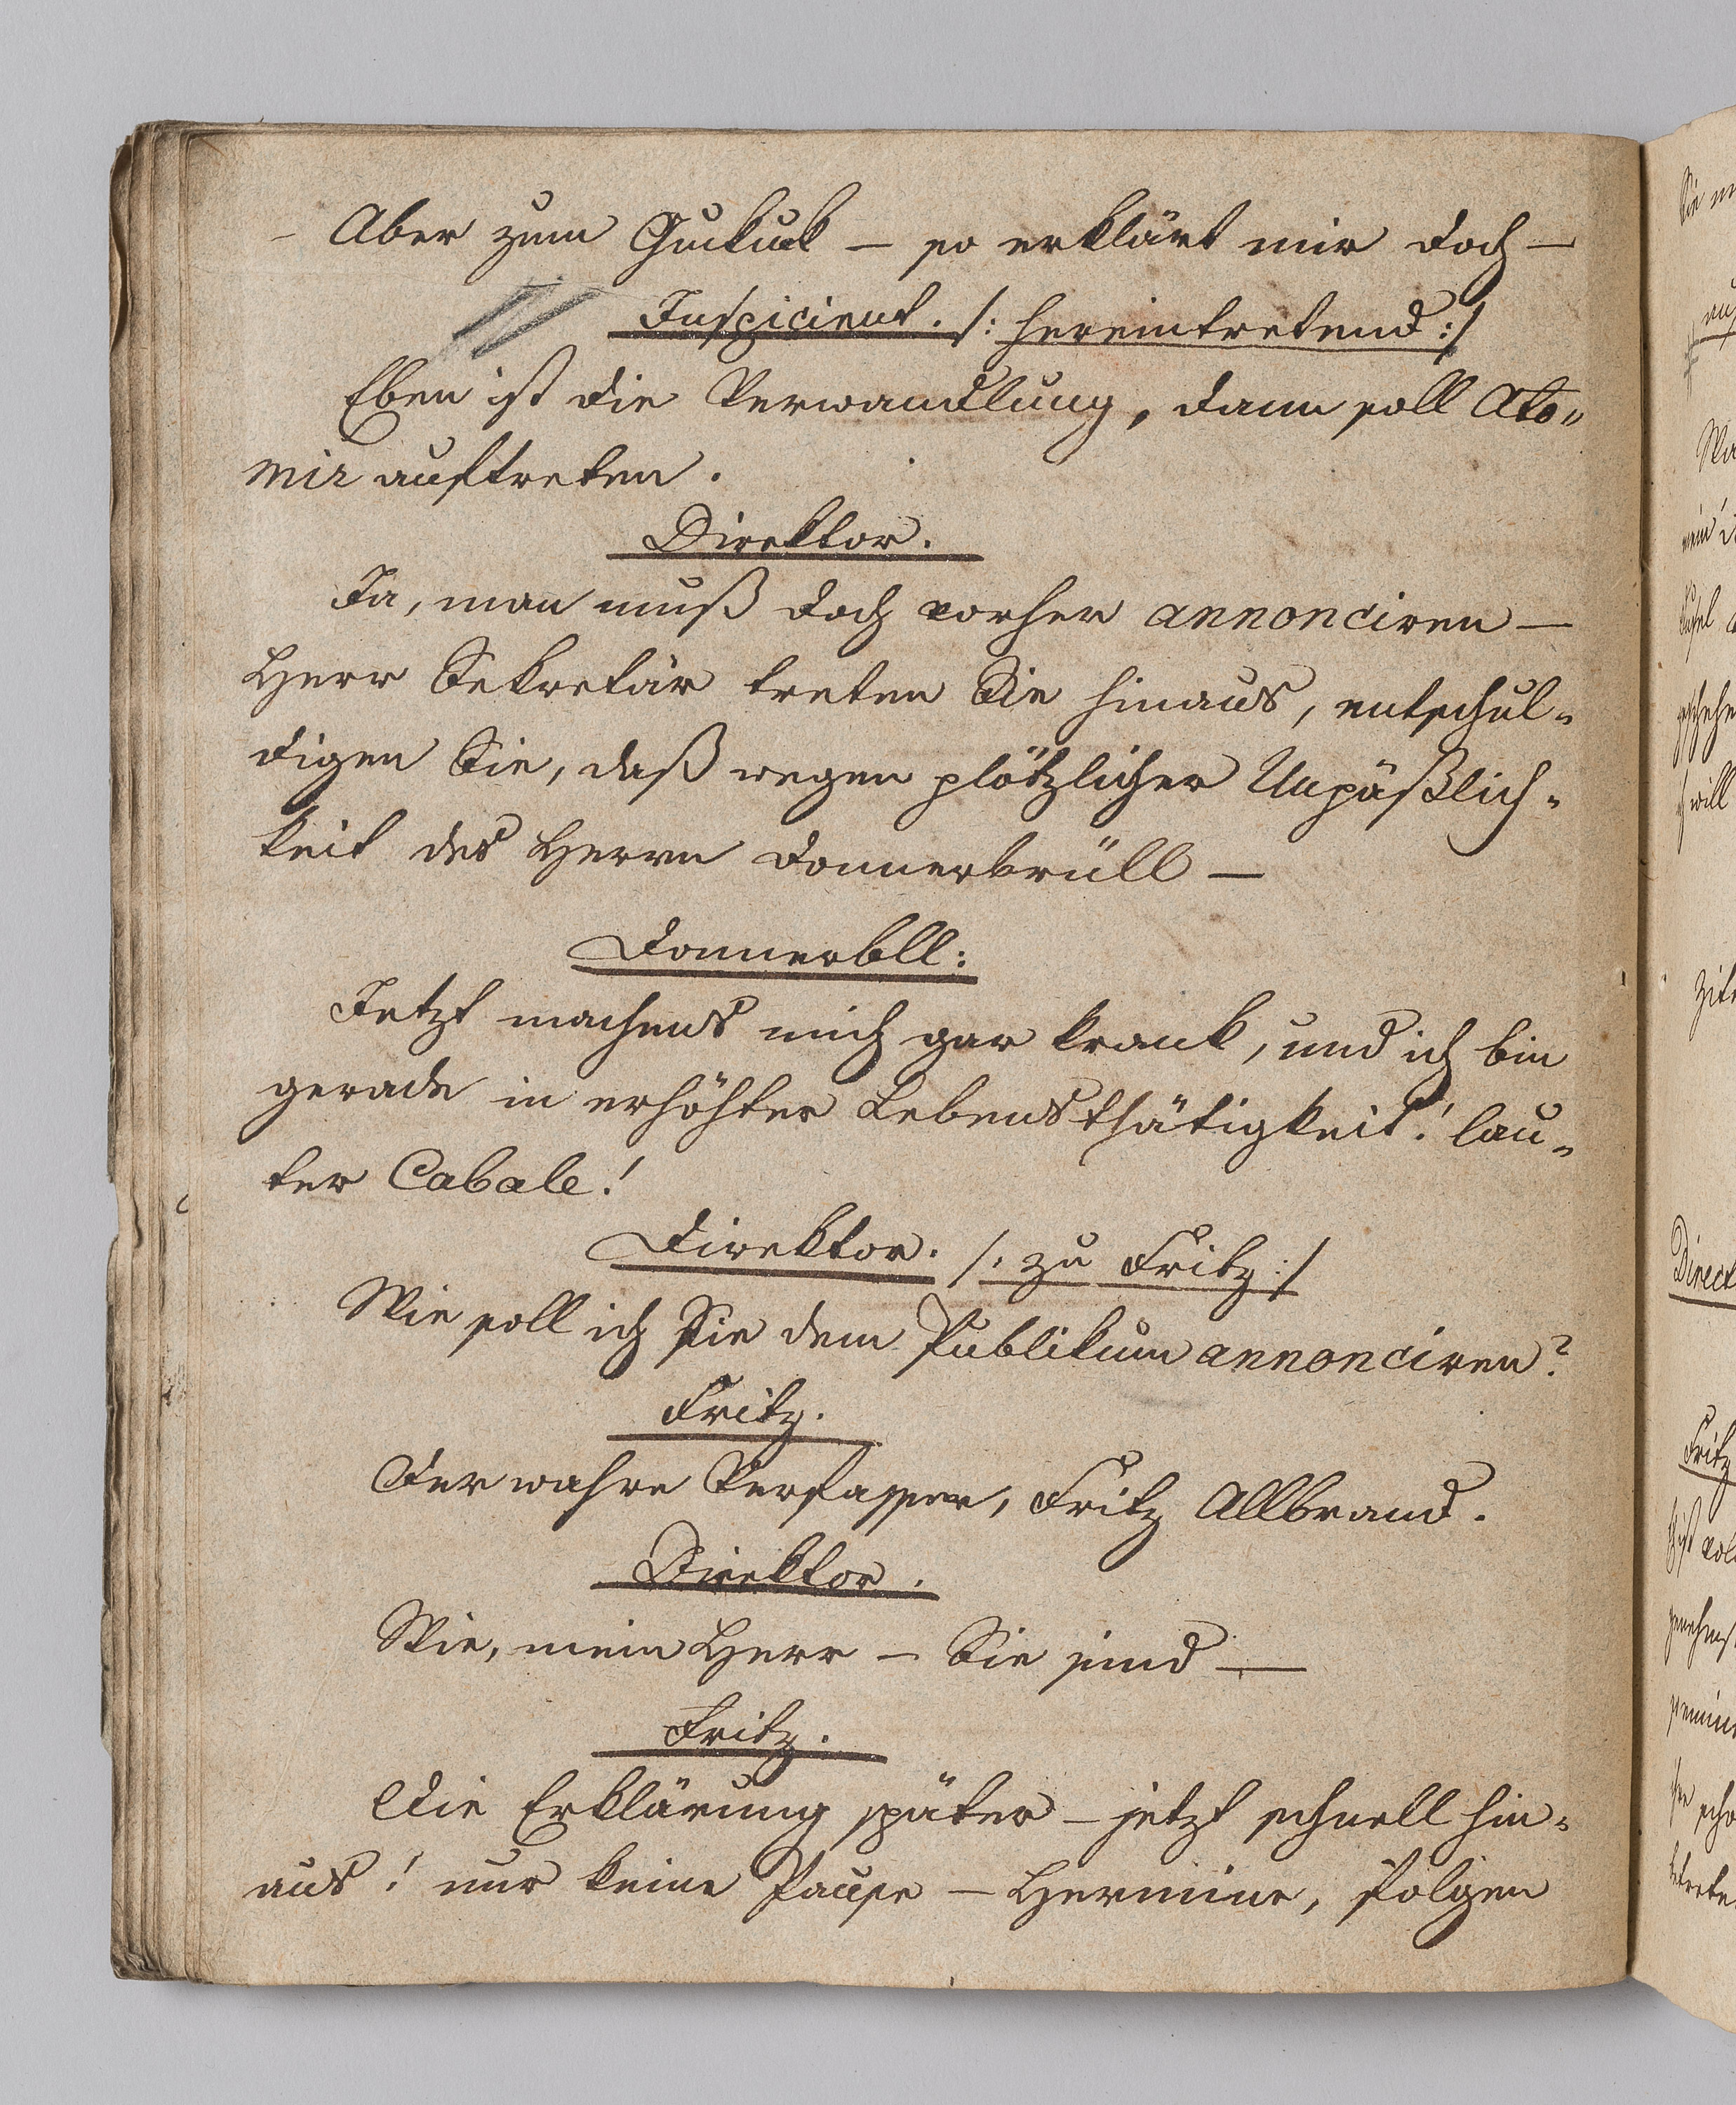 Aber zum Gukuck — so erklärt mir doch —
Inspicient. /: hereintretend :/
Eben ist die Verwandlung, dann soll Ato„
mir auftreten.
Direktor.
Ja, man muß doch vorher annonciren —
Herr Sekretär treten Sie hinaus, entschul„
digen Sie, daß wegen plötzlicher Unpäßlich„
keit des Herrn Donnerbrüll —
Donnerbll:
Jetzt machens mich gar krank, und ich bin
gerade in erhöhter Lebensthätigkeit! lau„
ter Cabale!
Direktor. /: zu Fritz :/
Wie soll ich Sie dem Publikum annonciren?
Fritz.
Der wahre Verfasser, Fritz Allbrand.
Direktor.
Wie, mein Herr — Sie sind —
Fritz.
Die Erklärung später — jetzt schnell hin„
aus! nur keine Pause — Hermine, folgen